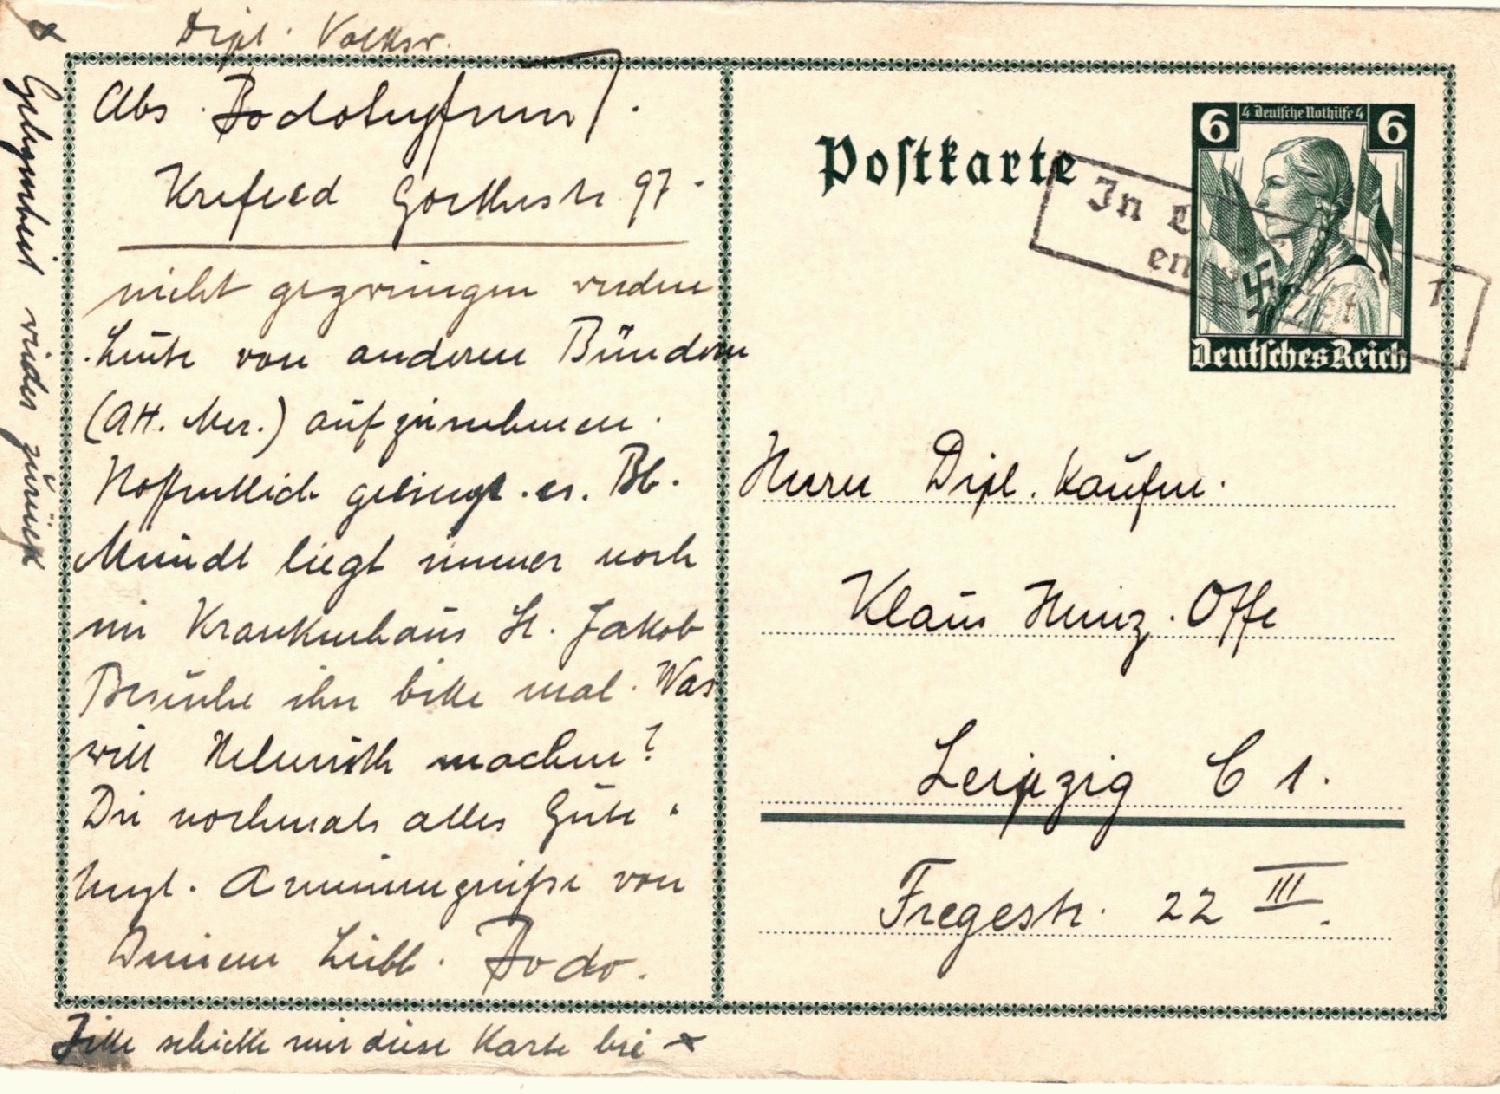 Dipl. Volksw.
Abs. Bodo
Krefeld Goethestr. 97.
nicht gezwungen werden
Leute von anderen Bünden
(AH. Mer.) aufzunehmen.
Hoffentlich gelingt es. Bb.
Mundt liegt immer noch
im Krankenhaus St. Jakob
Besuche ihn bitte mal. Was
will Helmuth machen?
Dir nochmals alles Gute.
Herzl. Arminengrüße von
Deinem Leibb. Bodo.
Bitte schicke mir diese Karte bei x
x Gelegenheit wieder zurück
Postkarte
In
6 Deutsche Nothilfe 6
Deutsches Reich
Herrn Dipl. Kaufm.
Klaus Heinz Offe
Leipzig C 1.
Fregestr. 22 III.